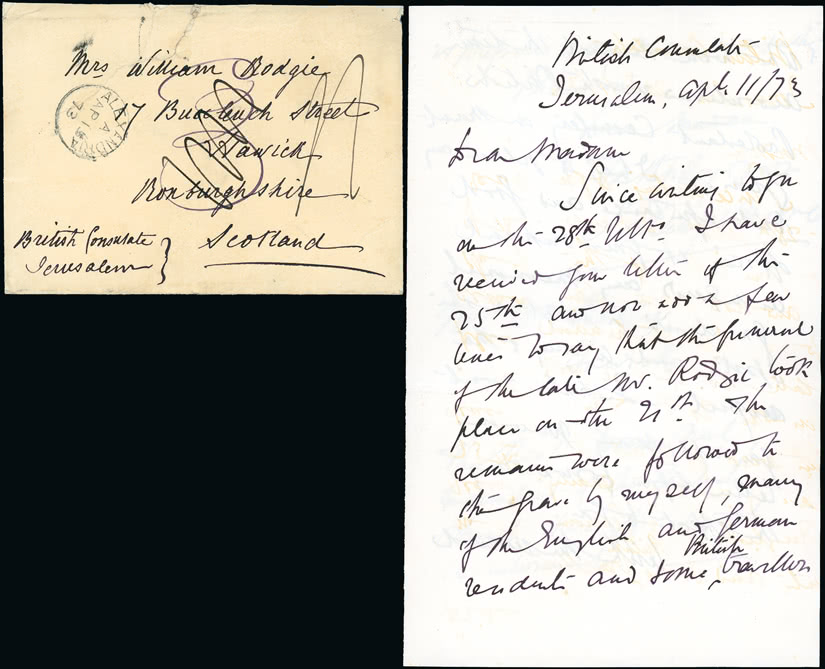 Mrs William Rodgie
17 Buccleuch Street
Hawick
Roxburghshire
Scotland
British Consulate
Jerusalem
ALEXANDRIA
A
AP 15
73
British Consulate
Jerusalem, Apl. 11/73
Dear Madam
Since writing to you
on the 28th Ulto. I have
received your letter of the
25th and now add a few
lines to say that the funeral
of the late Mr. Rodgie took
place on the 21st. The
remains were followed to
the grave by myself, many
of the English and German
residents and some British travellers